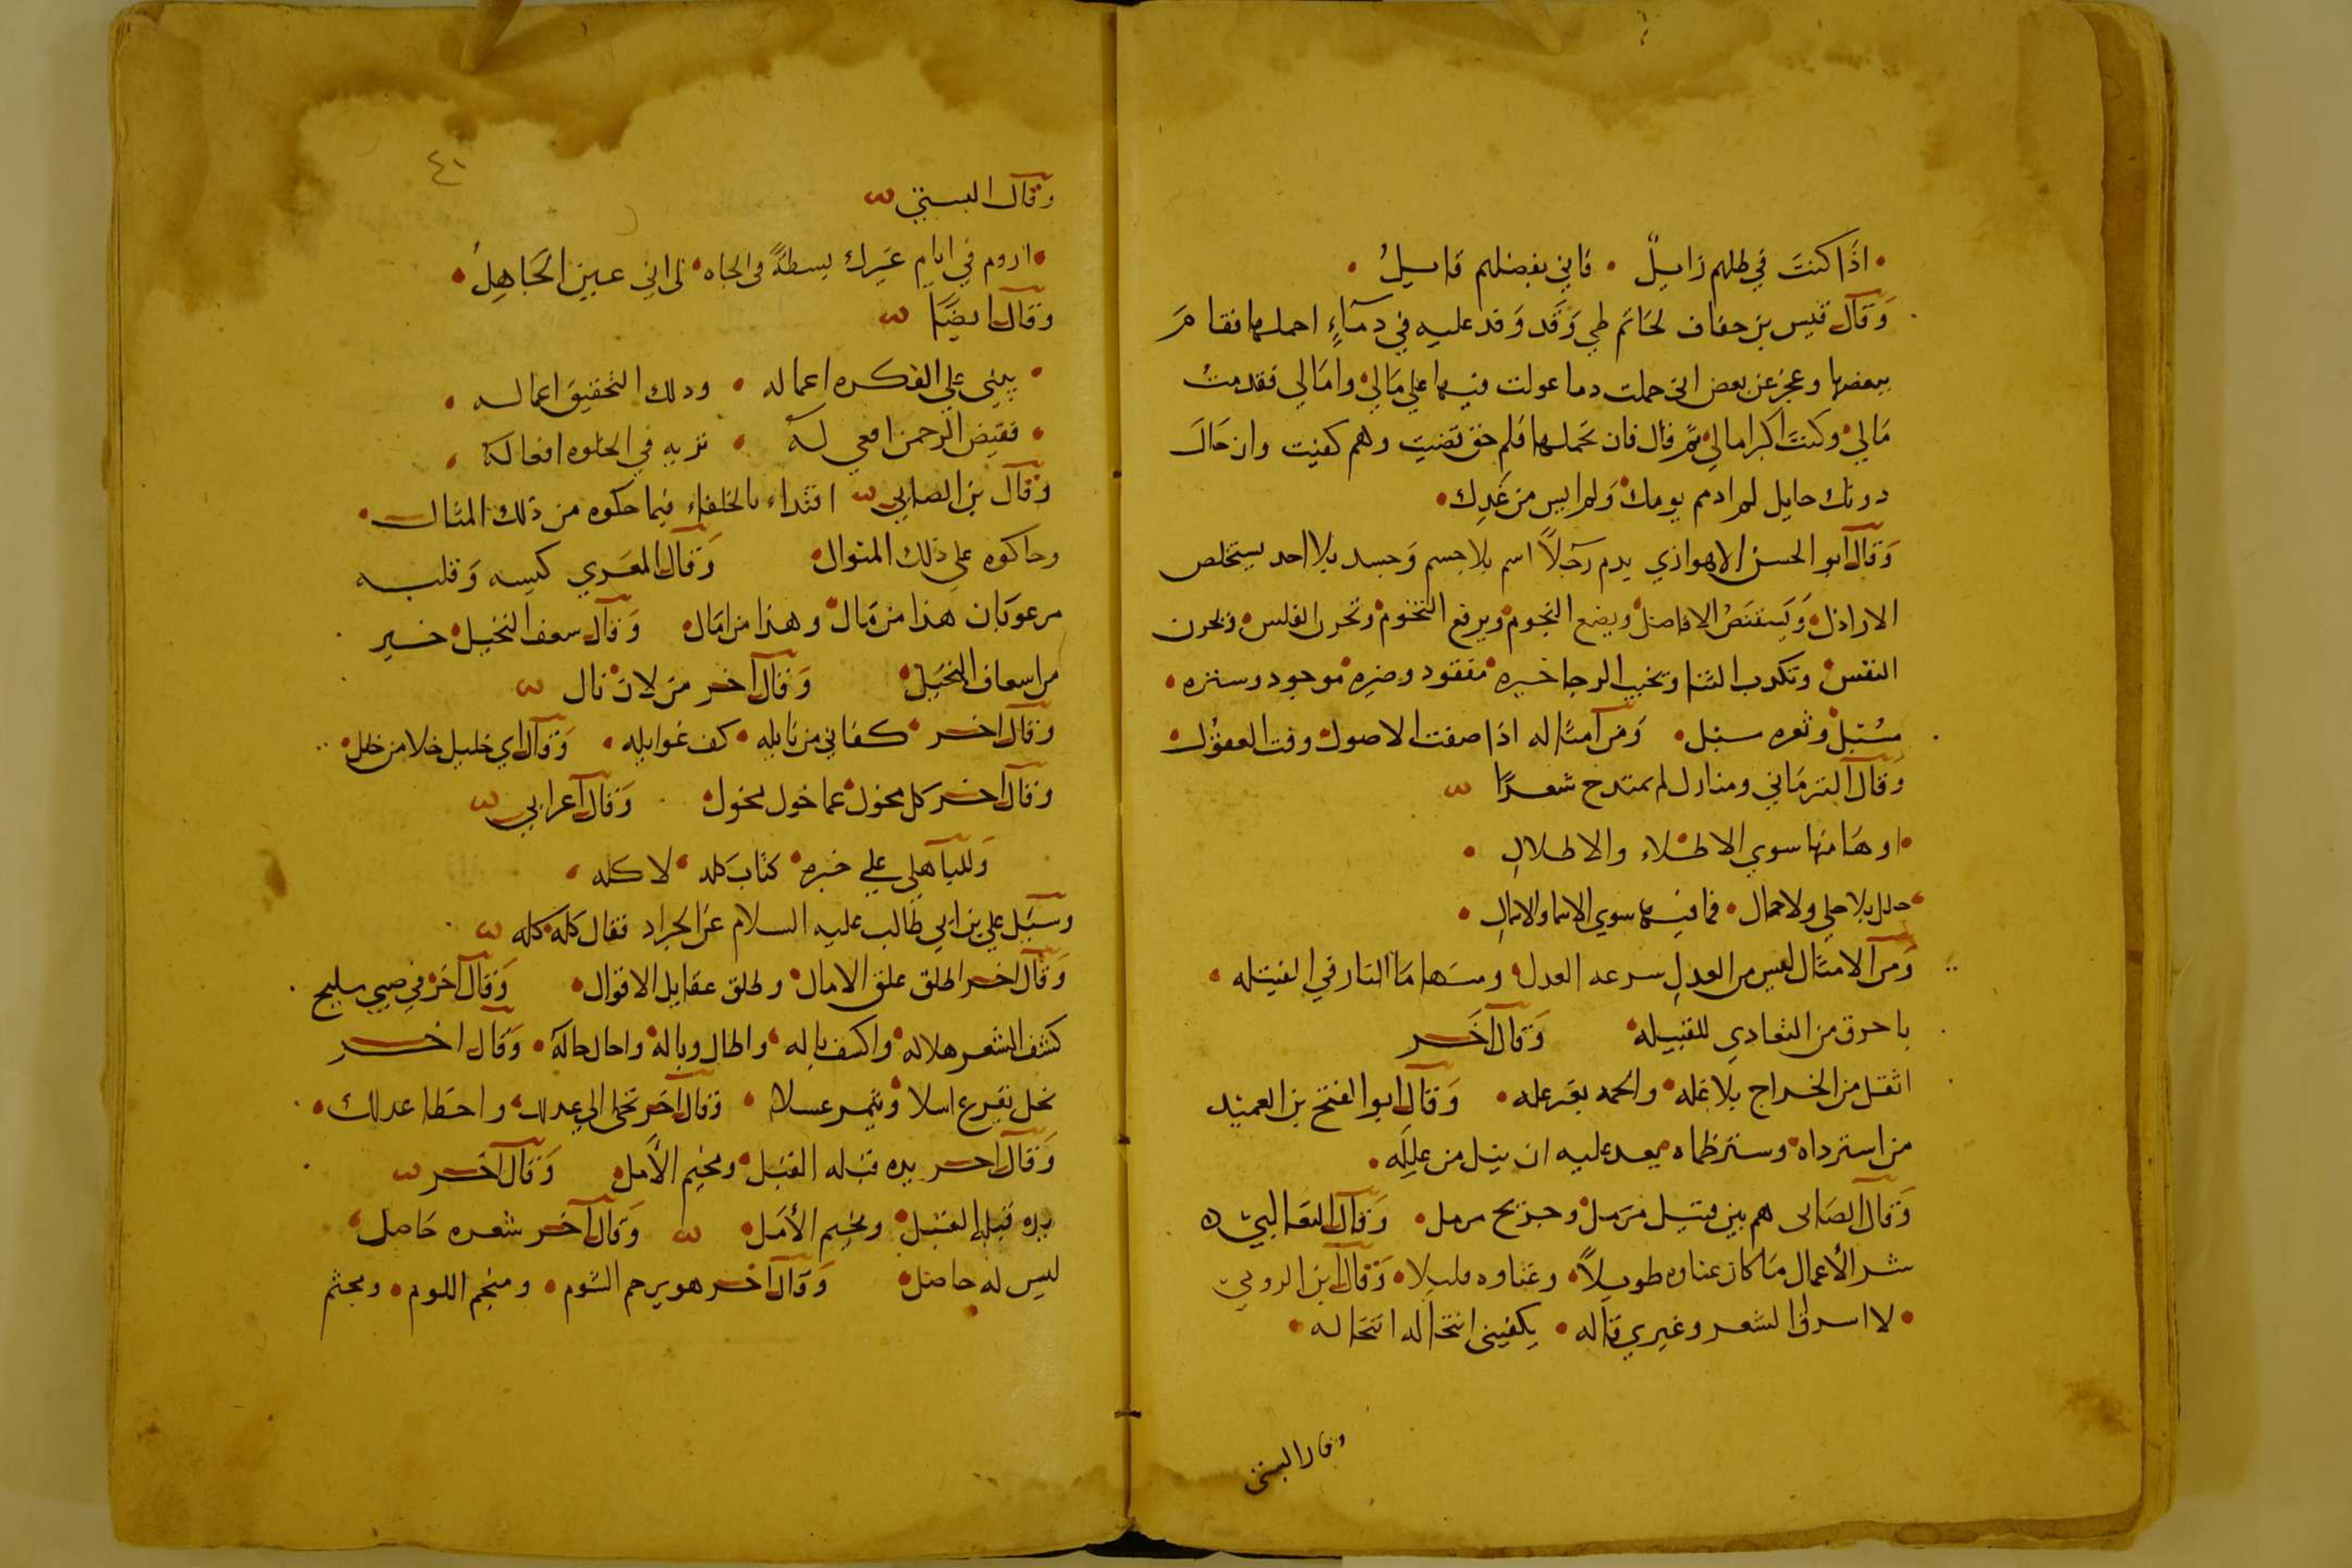 • اذَا كنتَ في ظلهم زايلٌ • فاني بفضلهم قايلُ •
وَقَالَ قيس بن حفاف لحَاتم طي وَقَد وَفد عليه في دمَاءٍ احملها فقامَ
ببعضها وعجز عن بعض اني حملت دما عولت فيها علي مَالي وامَالي فقدمتُ
مَالي وكنتَ اكبر امالي ثمَّ قال فان تحملها فلم حق قضيت وهم كفيت وان حَالَ
دونك حايل لم اذمم يومك وَلم ايس من غَدِك •
وَقَالَ ابو الحسن الاهوازي يدم رَجلاً اسم بلا جسم وَجسد بلا احد يستخلص
الاراذل وَيستنقصُ الافاصل ويضع النجوم ويرفع التخوم وتحرن الفلس وتحرن
النفس وتكدب الثنا وتخيب الرجا خيره مفقود وضره موجود وستره •
مسُتبل وثعره سبل • وَمن امثاله اذا صفت الاصول وفت العقوُل
وَقَالَ الترمَاني ومنازل لم يمتدح شعرًا
• اوهَا منها سوي الاطلاء والاطلالِ •
حلل بلا حلي ولا حمال • فما فيها سوي الاسما والاسمالِ •
وَمن الامثال ليس من العدلِ سرعه العدل وسَها مَا النار في الفتيله •
باحرق من التعادي للقبيله وَقَالَ اخَر
اثقل من الخراج بلا غله والحمد بغَير عله • وَقَالَ ابو الفتح بن العميد
من استر داه وستر ظماه بعد عليه ان يبل من عَللِه •
وَقَالَ الصَابي هم بين قتيل مزمل وجريح مرمل • وَقَالَ الثعَالبي
شر الأعمال مَا كان عناوه طويلاً • وغناوه قليلا • وَقَالَ ابن الرومي
• لا اسرق الشعر وغيري قاله • يكفيني انتخاله انتحَاله •
وقال البستي
٤١
وَقَالَ البستي
• اروم في ايامِ غَيرك بسطةً في الجاه • لي اني عين الجَاهِلُ •
وَقَالَ ايضًا
• يبني علي الفكره اعماله • ودلك التحقيق اعماله •
• فقيض الرحمن افعي له • تربه في الخلوه افعاله •
وَقَالَ بن الصابي اقتداء بالخلفاء فيما حكوه من ذلك المثال •
وحاكوه علي ذلك المنوال وَقَالَ المعَري كيسه وَقلبه
مرعوبَان هذا من مَال وهذا من امَال وَقَالَ سعف النخيل خير
من اسعاف البخيَل وَقَالَ اخر من لان نال
وَقَالَ اخر كفاني من نَايله • كف غوايله • وَقَالَ اي خليل خلا من خلل
وَقَالَ اخر كل مخول عما خول مخول وَقَالَ اعرابي
وَللباهلي علي خبزه كتابَ كله • لا كله •
وسيَل علي بن ابي طَالب عليه السلام عن الجراد فقال كله كله
وَقَالَ اخر اطلق علق الامال وطلق عقايل الاقوال • وَقَالَ اخَر في صبي مليح
كشف الشعر هلاله واكسف باله • واطال وباله واحال حاله • وَقَالَ اخر
نحل يفرع اسلا ويثمر عسلا • وَقَالَ اخَر تخطي الي عدلك واخطا عدلك •
وَقَالَ اخر يده قبله القبَل ومخيم الأمل وَقَالَ اخر
يده قبله القبَل ومخيم الأمَل وَقَالَ اخر شعره حَاصل
ليس له حاصل • وَقَالَ اخر هو يرحم الشوم • ومنجم اللوم • ومجثم